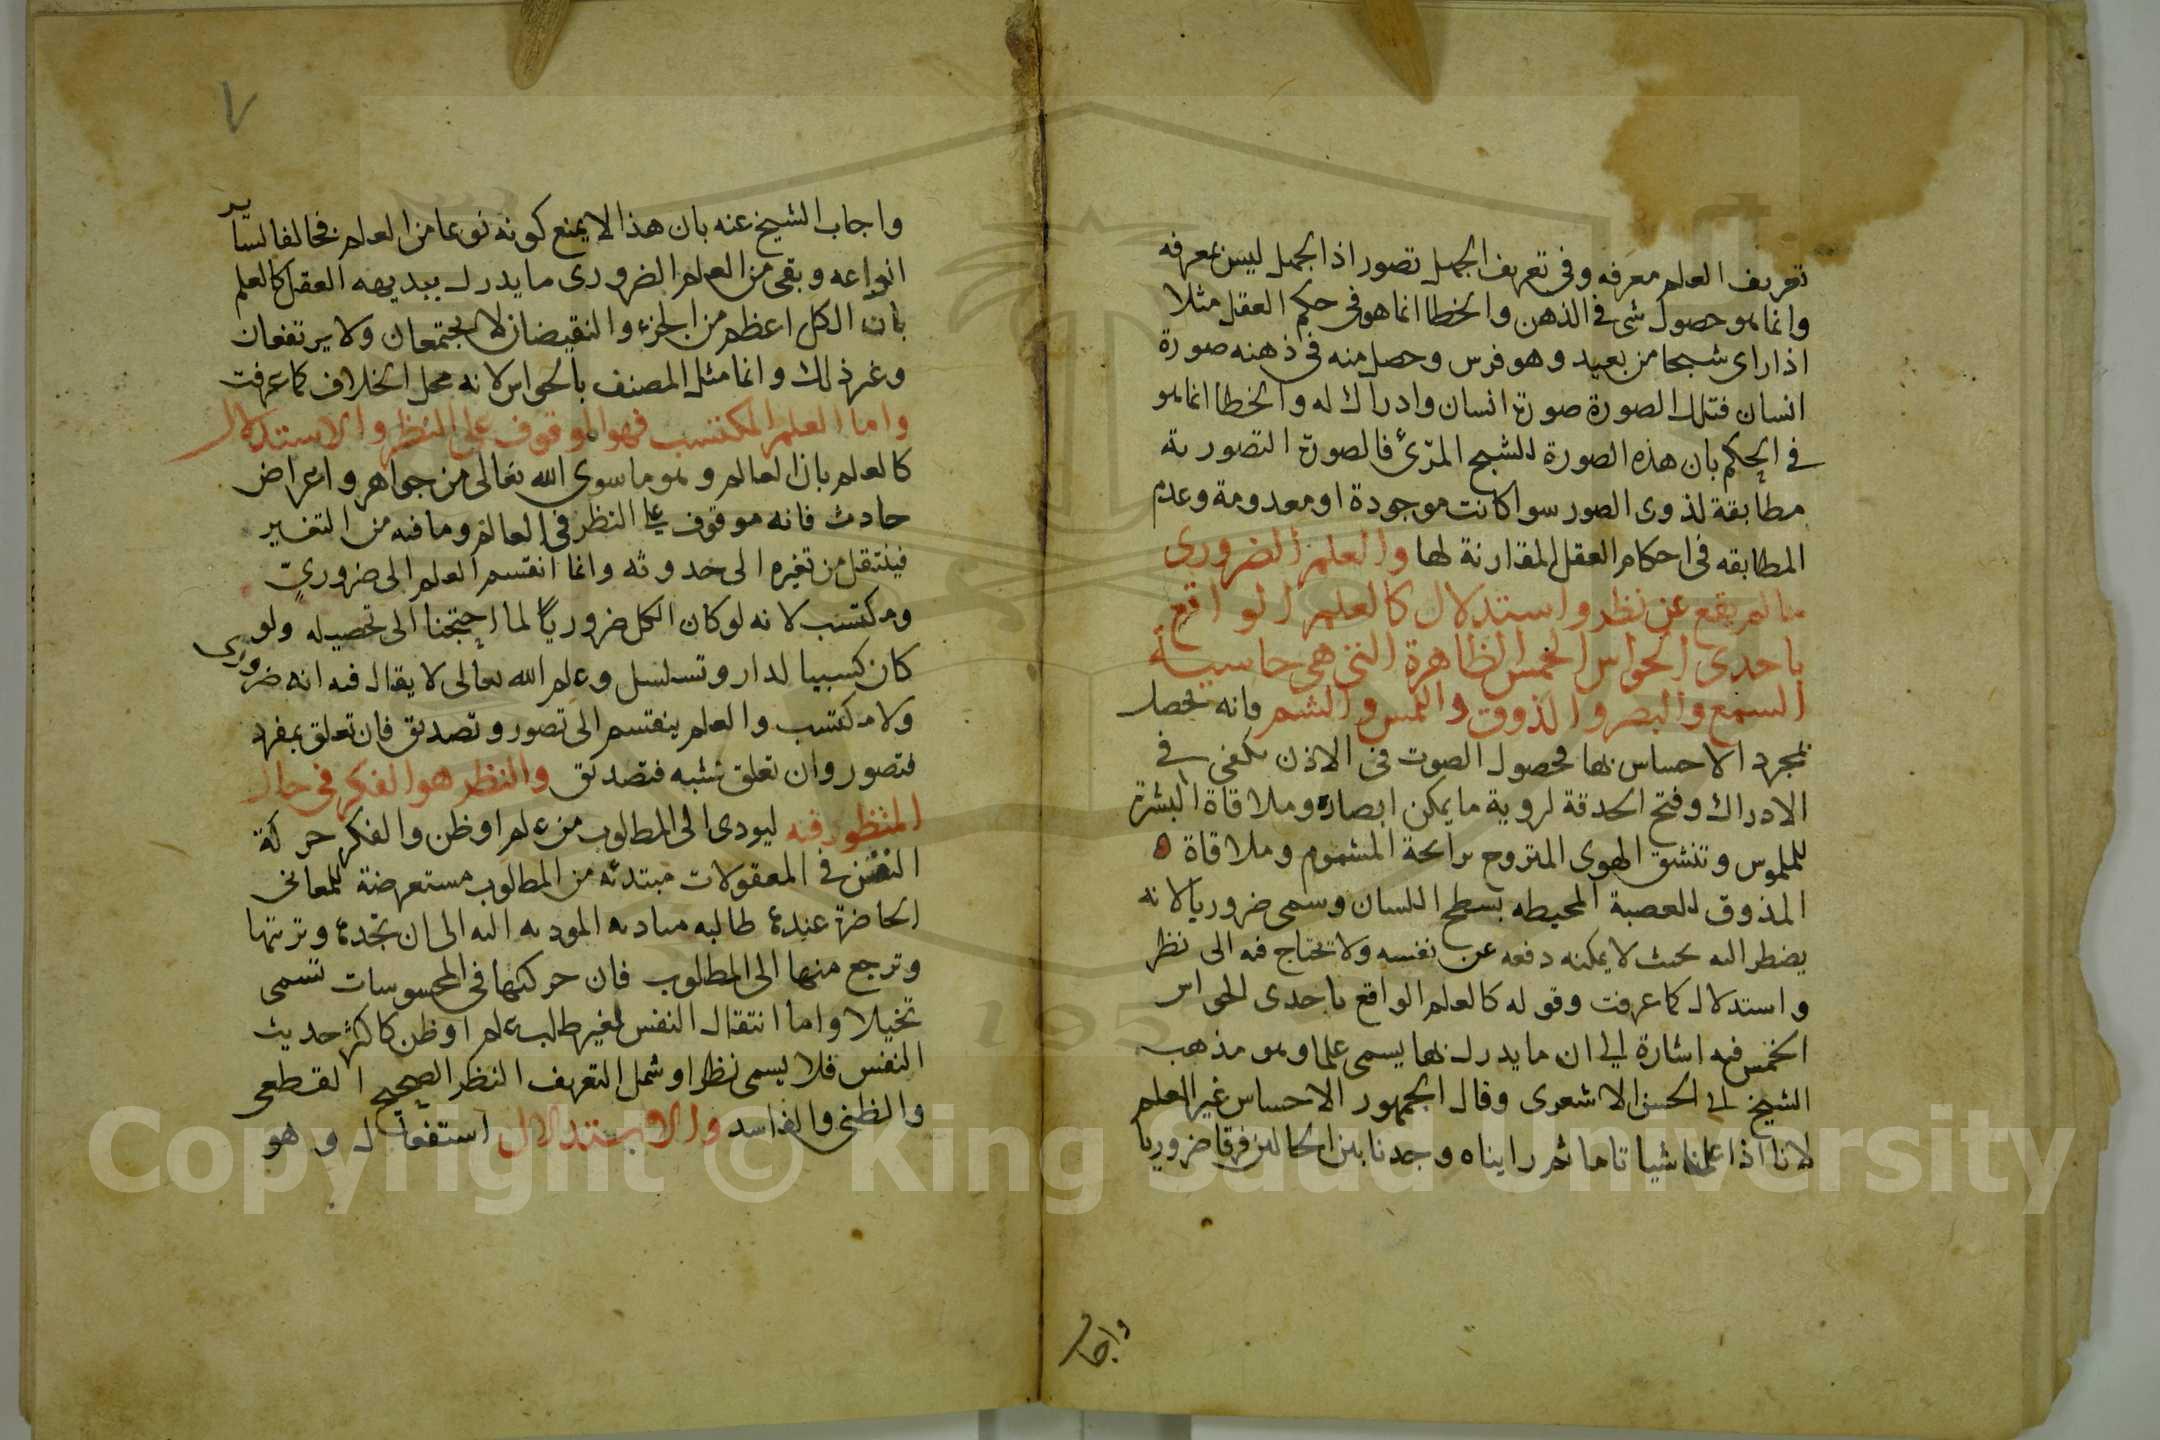 تعريف العلم معرفه وفي تعريف الجهل تصور اذ الجهل ليس بمعرفه
وانما هو حصول شي في الذهن والخطا انما هو في حكم العقل مثلا
اذا راى شبحا من بعيد وهو فرس وحصل منه في ذهنه صورة
انسان فتلك الصورة صورة انسان وادراك له والخطا انما هو
في الحكم بان هذه الصورة للشبح المرئ فالصورة التصورية
مطابقة لذوى الصور سوا كانت موجودة او معدومة وعدم
المطابقه في احكام العقل المقارنة لها والعلم الضرورى
ما لم يقع عن نظر واستدلال كالعلم الواقع
باحدى الحواس الخمس الظاهرة التي هي حاسة
السمع والبصر والذوق واللمس والشم فانه تحصل
بمجرد الاحساس بها فحصول الصوت في الاذن يكفي في
الادراك وفتح الحدقة لروية ما يمكن ابصاره وملاقاة البشرة
للملموس وتنشق الهوى المتروح برائحة المشموم وملاقاة ه
المذوق للعصبة المحيطه بسطح اللسان وسمى ضروريا لانه
يضطر اليه بحيث لا يمكنه دفعه عن نفسه ولا تحتاج فيه الى نظر
واستدلال كما عرفت وقوله كالعلم الواقع باحدى الحواس
الخمس فيه اشارة الى ان ما يدرك بها يسمى علما وهو مذهب
الشيخ ابي الحسن الاشعرى وقال الجمهور الاحساس غير العلم
لانا اذا علمنا شيا تاما ثم رايناه وجدنا بين الحالين فرقا ضروريا
واجاب
٧
واجاب الشيخ عنه بان هذا لا يمنع كونه نوعا من العلم مخالفا لساير
انواعه وبقى من العلم الضرورى ما يدرك ببديهه العقل كالعلم
بان الكل اعظم من الجزء والنقيضان لا يجتمعان ولا يرتفعان
وغير ذلك وانما مثل المصنف بالحواس لانه محل الخلاف كما عرفت
واما العلم المكتسب فهو الموقوف على النظر والاستدلال
كالعلم بان العالم وهو ما سوى الله تعالى من جواهر واعراض
حادث فانه موقوف على النظر في العالم وما فيه من التغير
فينتقل من تغيره الى حدوثه وانما انقسم العلم الى ضروري
ومكتسب لانه لو كان الكل ضروريا لما احتجنا الى تحصيله ولو
كان كسبيا لدار وتسلسل وعلم الله تعالى لا يقال فيه انه ضرورى
ولا مكتسب والعلم ينقسم الى تصور وتصديق فان تعلق بمفرد
فتصور وان تعلق بنسبه فتصديق والنظر هو الفكر في حال
المنظور فيه ليودى الى المطلوب من علم او ظن والفكر حركة
النفس في المعقولات مبتدئه من المطلوب مستعرضة للمعاني
الحاضرة عندها طالبه مباديه الموديه اليه الى ان تجدها وترتبها
وترجع منها الى المطلوب فان حركتها في المحسوسات تسمى
تخيلا واما انتقال النفس لغير طلب علم او ظن كاكثر حديث
النفس فلا يسمى نظرا وشمل التعريف النظر الصحيح القطعى
والظنى والفاسد والاستدلال استفعال وهو
Copyright © King Saud University
1957